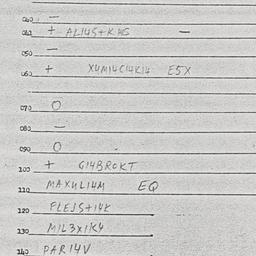 040 —
042 + ALI4S+KHS —
050 —
060 + X4MI4CI4KI4 E5X
070 O
080 —
090 O
100 + GI4BROKT
110 MAXULI4M EQ
120 FLEJS+I4K
130 MIL3XIK4
140 PARI4V